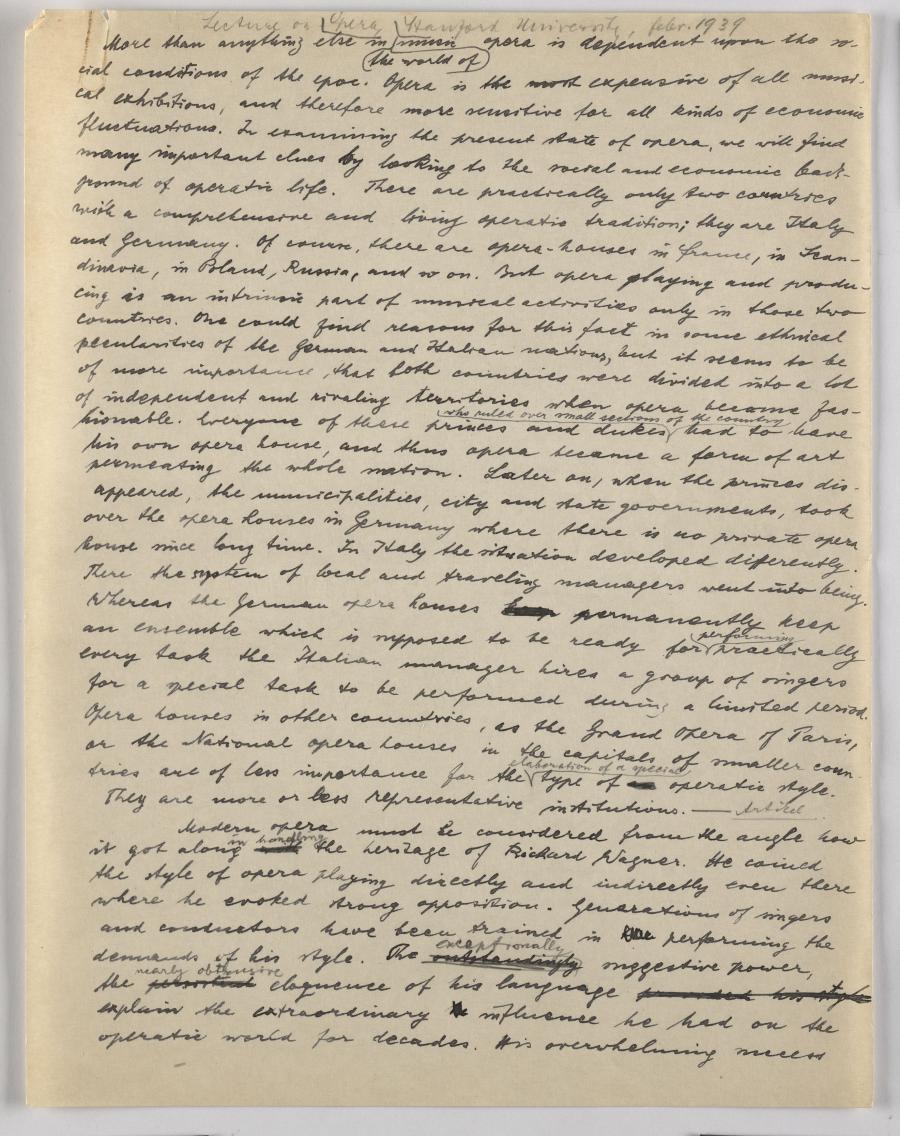 Lecture on Opera, Stanford University, febr. 1939
More than anything else in music opera is dependent upon the so-
the world of
cial conditions of the epoc. Opera is the most expensive of all musi-
cal exhibitions, and therefore more sensitive for all kinds of economic
fluctuations. In examining the present state of opera, we will find
many important clues by looking to the social and economic back-
ground of operatic life. There are practically only two countries
with a comprehensive and living operatic tradition; they are Italy
and Germany. Of course, there are opera-houses in France, in Scan-
dinavia, in Poland, Russia, and so on. But opera playing and produ-
cing is an intrinsic part of musical activities only in those two
countries. One could find reasons for this fact in some ethnical
pecularities of the German and Italian nations, but it seems to be
of more importance, that both countries were divided into a lot
of independent and rivaling territories when opera became fas-
who ruled over small sections of the country
hionable. Everyone of these princes and dukes had to have
his own opera house, and thus opera became a form of art
permeating the whole nation. Later on, when the princes dis-
appeared, the municipalities, city and state governments, took
over the opera houses in Germany where there is no private opera
house since long time. In Italy the situation developed differently.
There the system of local and traveling managers went into being.
Whereas the German opera houses permanently keep
an ensemble which is supposed to be ready for performing practically
every task the Italian manager hires a group of singers
for a special task to be performed during a limited period.
Opera houses in other countries, as the Grand Opera of Paris,
or the National opera houses in the capitals of smaller coun-
elaboration of a special
tries are of less importance for the type of operatic style.
They are more or less representative institutions. — Artikel
Modern opera must be considered from the angle how
it got along in handling the heritage of Richard Wagner. He coined
the style of opera playing directly and indirectly even there
where he evoked strong opposition. Generations of singers
and conductors have been trained in performing the
exceptionally
demands of his style. The outstandingly suggestive power,
nearly obtrusive
the persistent eloquence of his language provided his style
explain the extraordinary influence he had on the
operatic world for decades. His overwhelming success